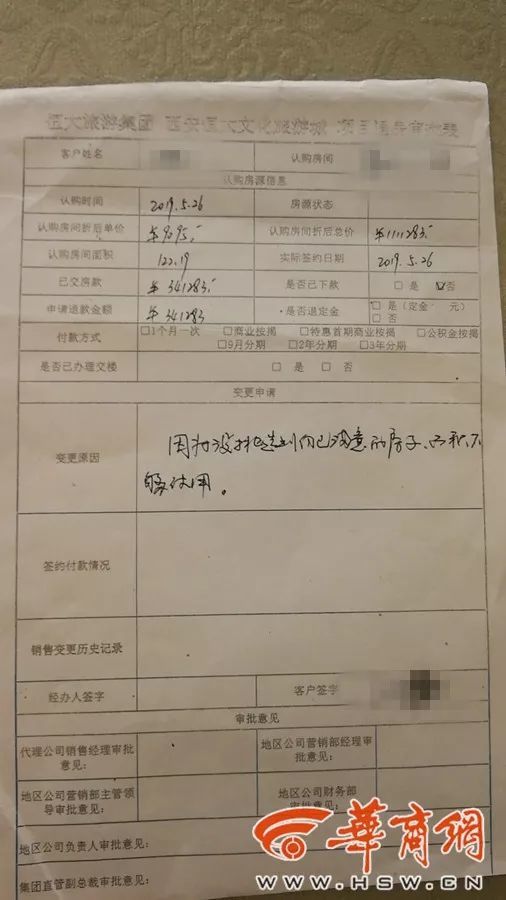 恒大旅游集团 西安恒大文化旅游城
客户姓名 认购房间
认购房源信息
认购时间 2019.5.26 房源状态
认购房间折后单价 ¥9095. 认购房间折后总价 ¥1111283.
认购房间面积 122.19 实际签约日期 2019.5.26
已交房款 ¥341283. 是否已下款 □是 ☑否
申请退款金额 ¥341283 是否退定金 □是(定金 元) □否
付款方式 □1个月一次 □商业按揭 □特惠首期商业按揭 □公积金按揭
□9月分期 □2年分期 □3年分期
是否已办理交楼 □是 □否
变更申请
变更原因 因为没挑选到自己满意的房子.面积不
够使用。
签约付款情况
销售变更历史记录
经办人签字 客户签字
审批意见
代理公司销售经理审批意见: 地区公司营销部经理审批意见:
地区公司营销部主管领导审批意见: 地区公司财务部审批意见:
地区公司负责人审批意见:
集团直管副总裁审批意见:
华商网
WWW.HSW.CN